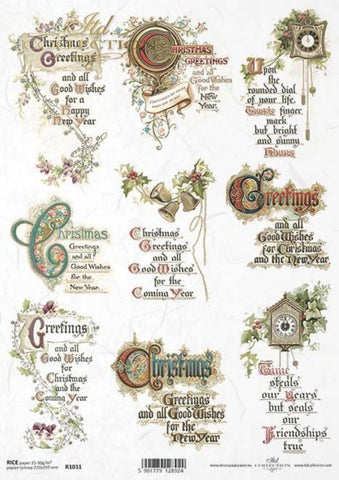 Christmas
Greetings
and all
Good Wishes
for a
Happy
New Year
Christmas
Greetings
and all
Good Wishes
for the
New
Year.
Upon
the
rounded dial
of your life,
finger
mark
but bright
and sunny
Hours
Christmas
Greetings
and all
Good Wishes
for the
New Year.
Christmas
Greetings
and all
Good Wishes
for the
Coming Year
Greetings
and all
Good Wishes
for Christmas
and the New Year
Greetings
and all
Good Wishes
for
Christmas
and the
Coming Year
Christmas
Greetings
and all
Good Wishes
for the
New Year
Time
steals
our Years
but seals
our
Friendships
true
RICE paper 25-30g/m²
papier ryżowy 210x297 mm
R1031
5 901779 128924
ITD
COLLECTION
www.itdcollection.com